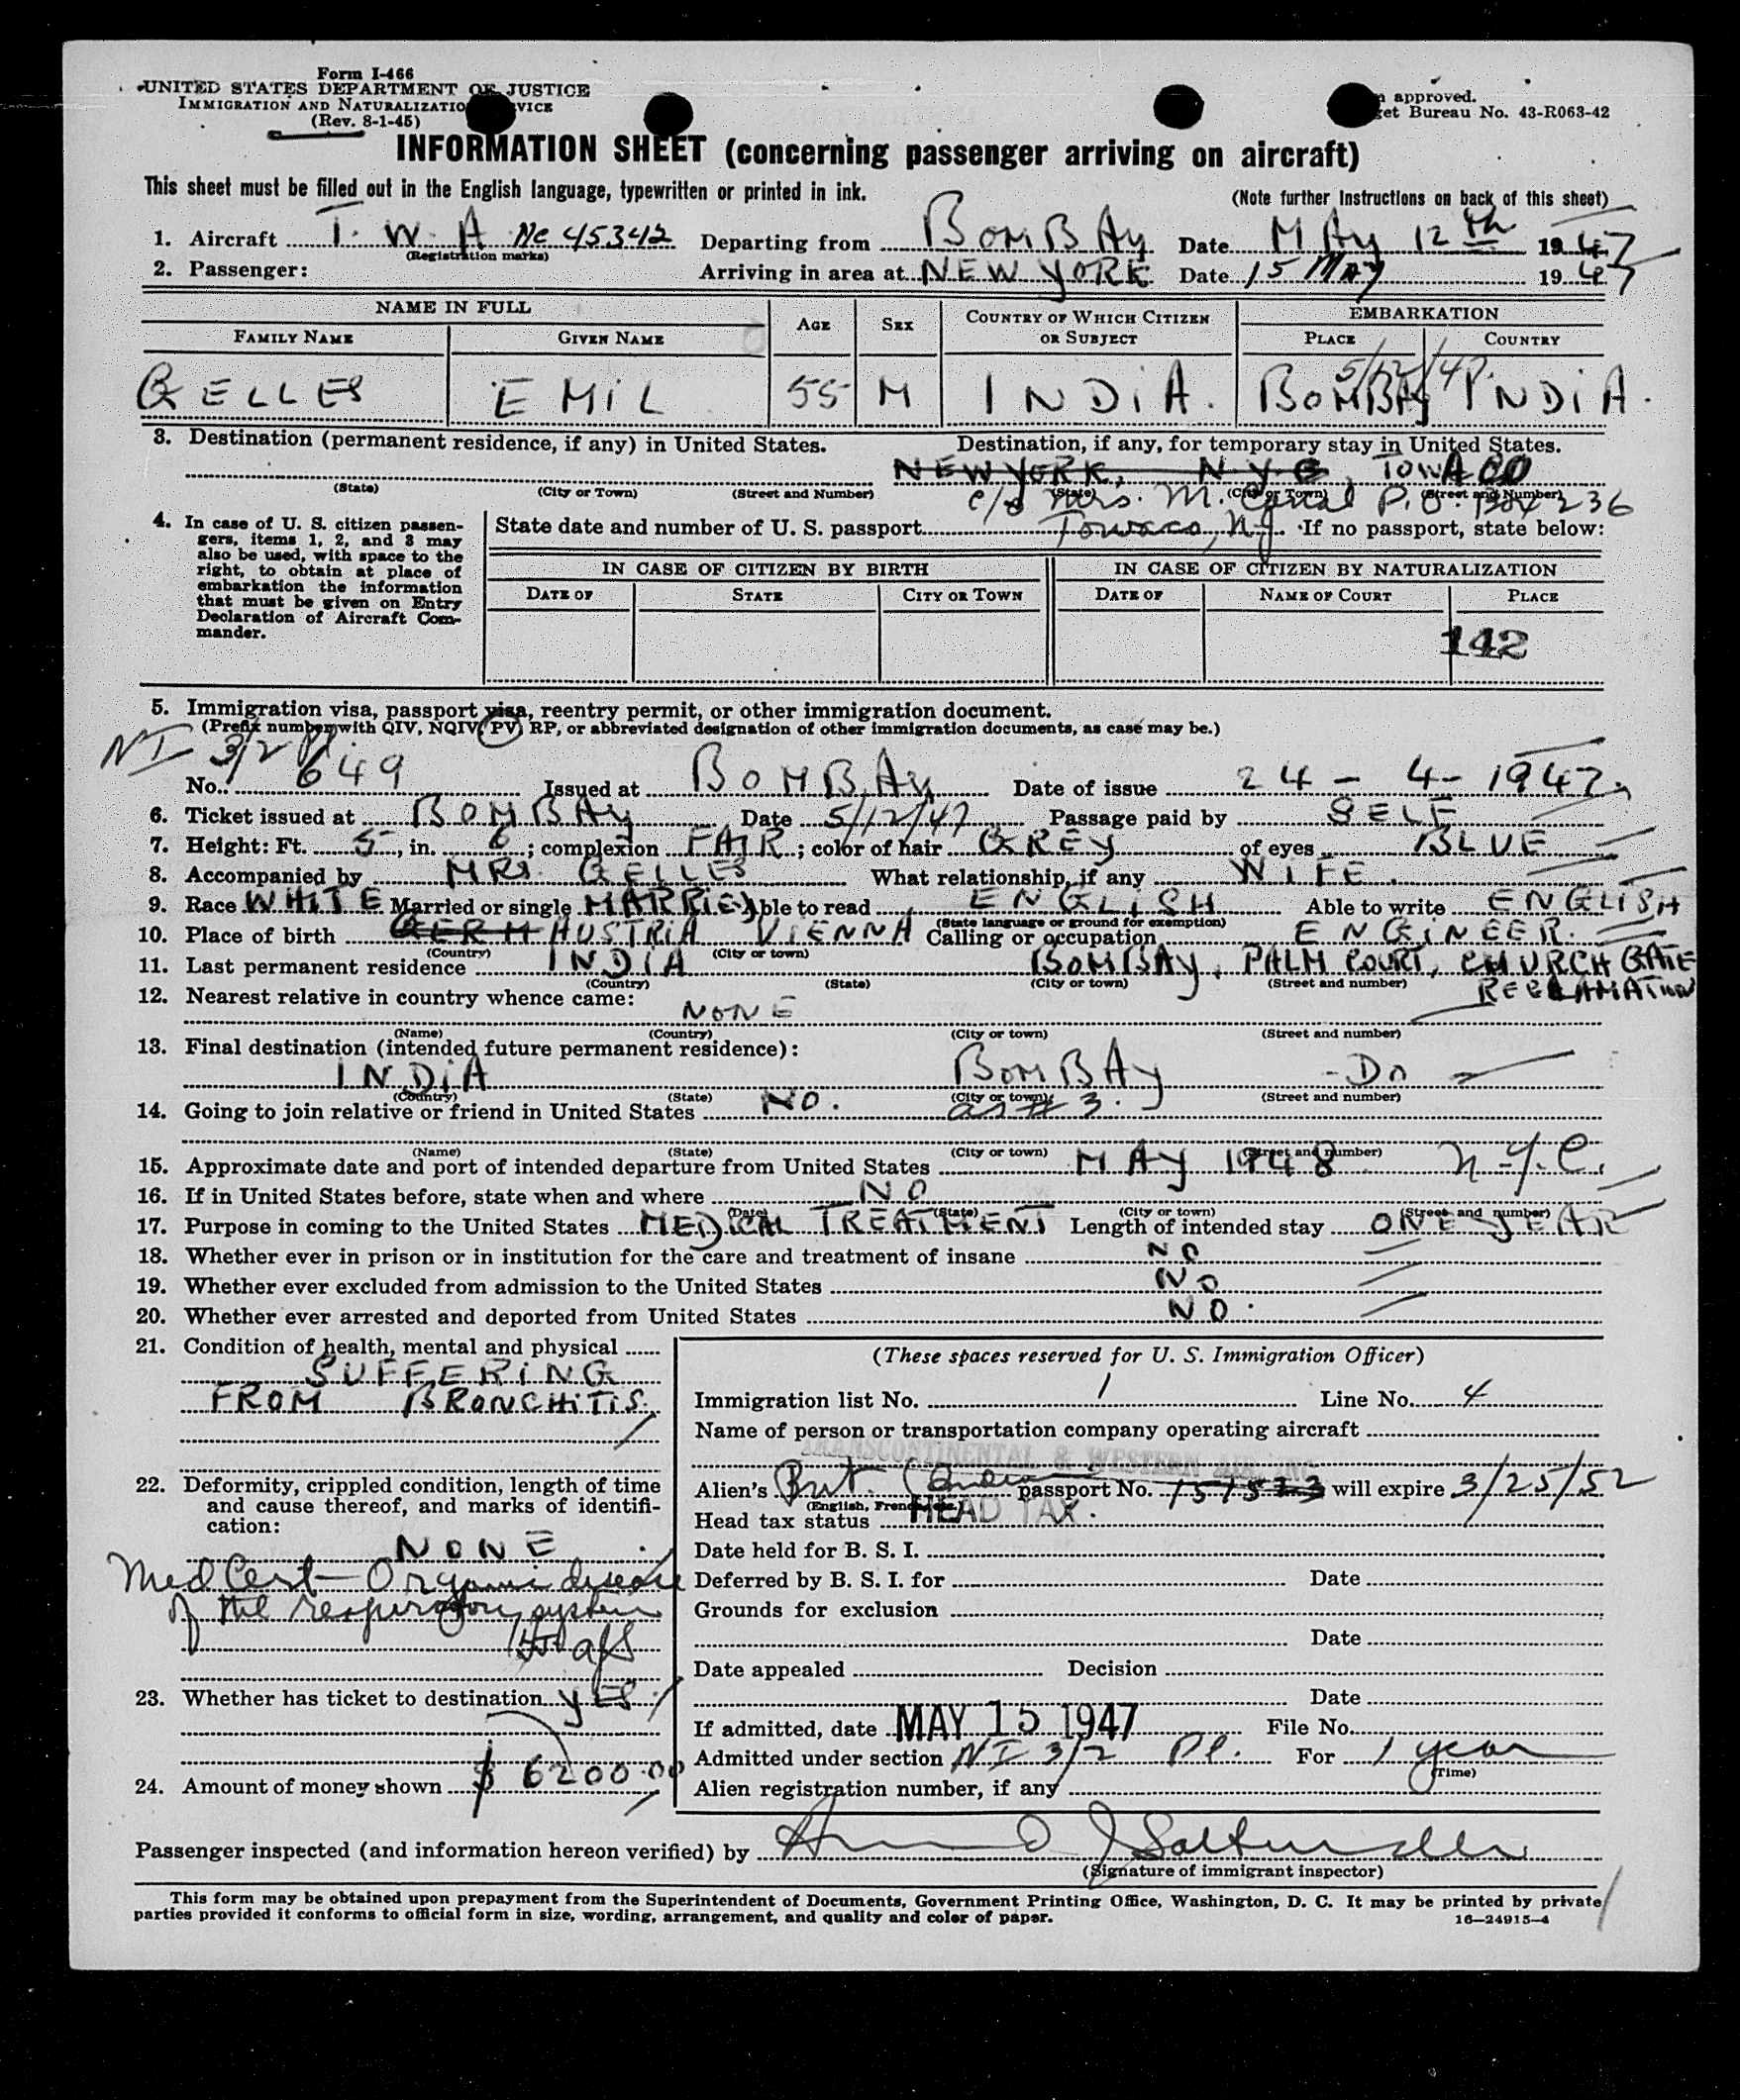 Form I-466
UNITED STATES DEPARTMENT OF JUSTICE
IMMIGRATION AND NATURALIZATIO VICE
(Rev. 8-1-45)
approved.
et Bureau No. 43-R063-42
INFORMATION SHEET (concerning passenger arriving on aircraft)
This sheet must be filled out in the English language, typewritten or printed in ink. (Note further instructions on back of this sheet)
1. Aircraft T. W. A Nc 45342 Departing from BOMBAY Date MAY 12th 1947
(Registration marks)
2. Passenger: Arriving in area at NEW YORK Date 15 MAY 1947
NAME IN FULL AGE SEX COUNTRY OF WHICH CITIZEN OR SUBJECT EMBARKATION
FAMILY NAME GIVEN NAME PLACE COUNTRY
5/12/47
GELLES EMIL 55 M INDIA. BOMBAY INDIA.
3. Destination (permanent residence, if any) in United States. Destination, if any, for temporary stay in United States.
NEW YORK, N Y C, TOWACO
(State) (City or Town) (Street and Number) (State) (City or Town) (Street and Number)
c/o Mrs. M. P.O. Box 236
4. In case of U. S. citizen passen- State date and number of U. S. passport Towaco, N.J. If no passport, state below:
gers, items 1, 2, and 3 may
also be used, with space to the
right, to obtain at place of
embarkation the information
that must be given on Entry
Declaration of Aircraft Com-
mander.
IN CASE OF CITIZEN BY BIRTH IN CASE OF CITIZEN BY NATURALIZATION
DATE OF STATE CITY OR TOWN DATE OF NAME OF COURT PLACE
142
5. Immigration visa, passport visa, reentry permit, or other immigration document.
(Prefix number with QIV, NQIV, PV, RP, or abbreviated designation of other immigration documents, as case may be.)
NI 3/2 Pl
No. 649 Issued at BOMBAY Date of issue 24-4-1947.
6. Ticket issued at BOMBAY Date 5/12/47 Passage paid by SELF
7. Height: Ft. 5, in. 6; complexion FAIR; color of hair GREY of eyes BLUE
8. Accompanied by MRS. GELLES What relationship, if any WIFE.
9. Race WHITE Married or single MARRIED Able to read ENGLISH Able to write ENGLISH
(State language or ground for exemption)
10. Place of birth GERM AUSTRIA VIENNA Calling or occupation ENGINEER.
(Country) (City or town)
11. Last permanent residence INDIA BOMBAY, PALM COURT, CHURCH GATE
(Country) (State) (City or town) (Street and number)
RECLAMATION
12. Nearest relative in country whence came: NONE
(Name) (Country) (City or town) (Street and number)
13. Final destination (intended future permanent residence):
INDIA BOMBAY - Do
(Country) (State) (City or town) (Street and number)
14. Going to join relative or friend in United States No. as # 3.
(Name) (State) (City or town) (Street and number)
15. Approximate date and port of intended departure from United States MAY 1948 N.Y.C.
16. If in United States before, state when and where NO
(Date) (State) (City or town) (Street and number)
17. Purpose in coming to the United States MEDICAL TREATMENT Length of intended stay ONE YEAR
18. Whether ever in prison or in institution for the care and treatment of insane NO
19. Whether ever excluded from admission to the United States NO
20. Whether ever arrested and deported from United States NO.
21. Condition of health, mental and physical
SUFFERING
FROM BRONCHITIS.
22. Deformity, crippled condition, length of time
and cause thereof, and marks of identifi-
cation:
NONE
Med Cert - Organic disease
of the respiratory system
23. Whether has ticket to destination YES.
24. Amount of money shown $ 6200.00
(These spaces reserved for U. S. Immigration Officer)
Immigration list No. 1 Line No. 4
Name of person or transportation company operating aircraft
TRANSCONTINENTAL & WESTERN AIR, INC.
Alien's Brit. passport No. 151533 will expire 3/25/52
(English, French, etc.)
Head tax status HEAD TAX.
Date held for B. S. I.
Deferred by B. S. I. for Date
Grounds for exclusion
Date
Date appealed Decision
Date
If admitted, date MAY 15 1947 File No.
Admitted under section NI 3/2 Pl. For 1 year
(Time)
Alien registration number, if any
Passenger inspected (and information hereon verified) by
(Signature of immigrant inspector)
This form may be obtained upon prepayment from the Superintendent of Documents, Government Printing Office, Washington, D. C. It may be printed by private
parties provided it conforms to official form in size, wording, arrangement, and quality and color of paper.
16—24915-4